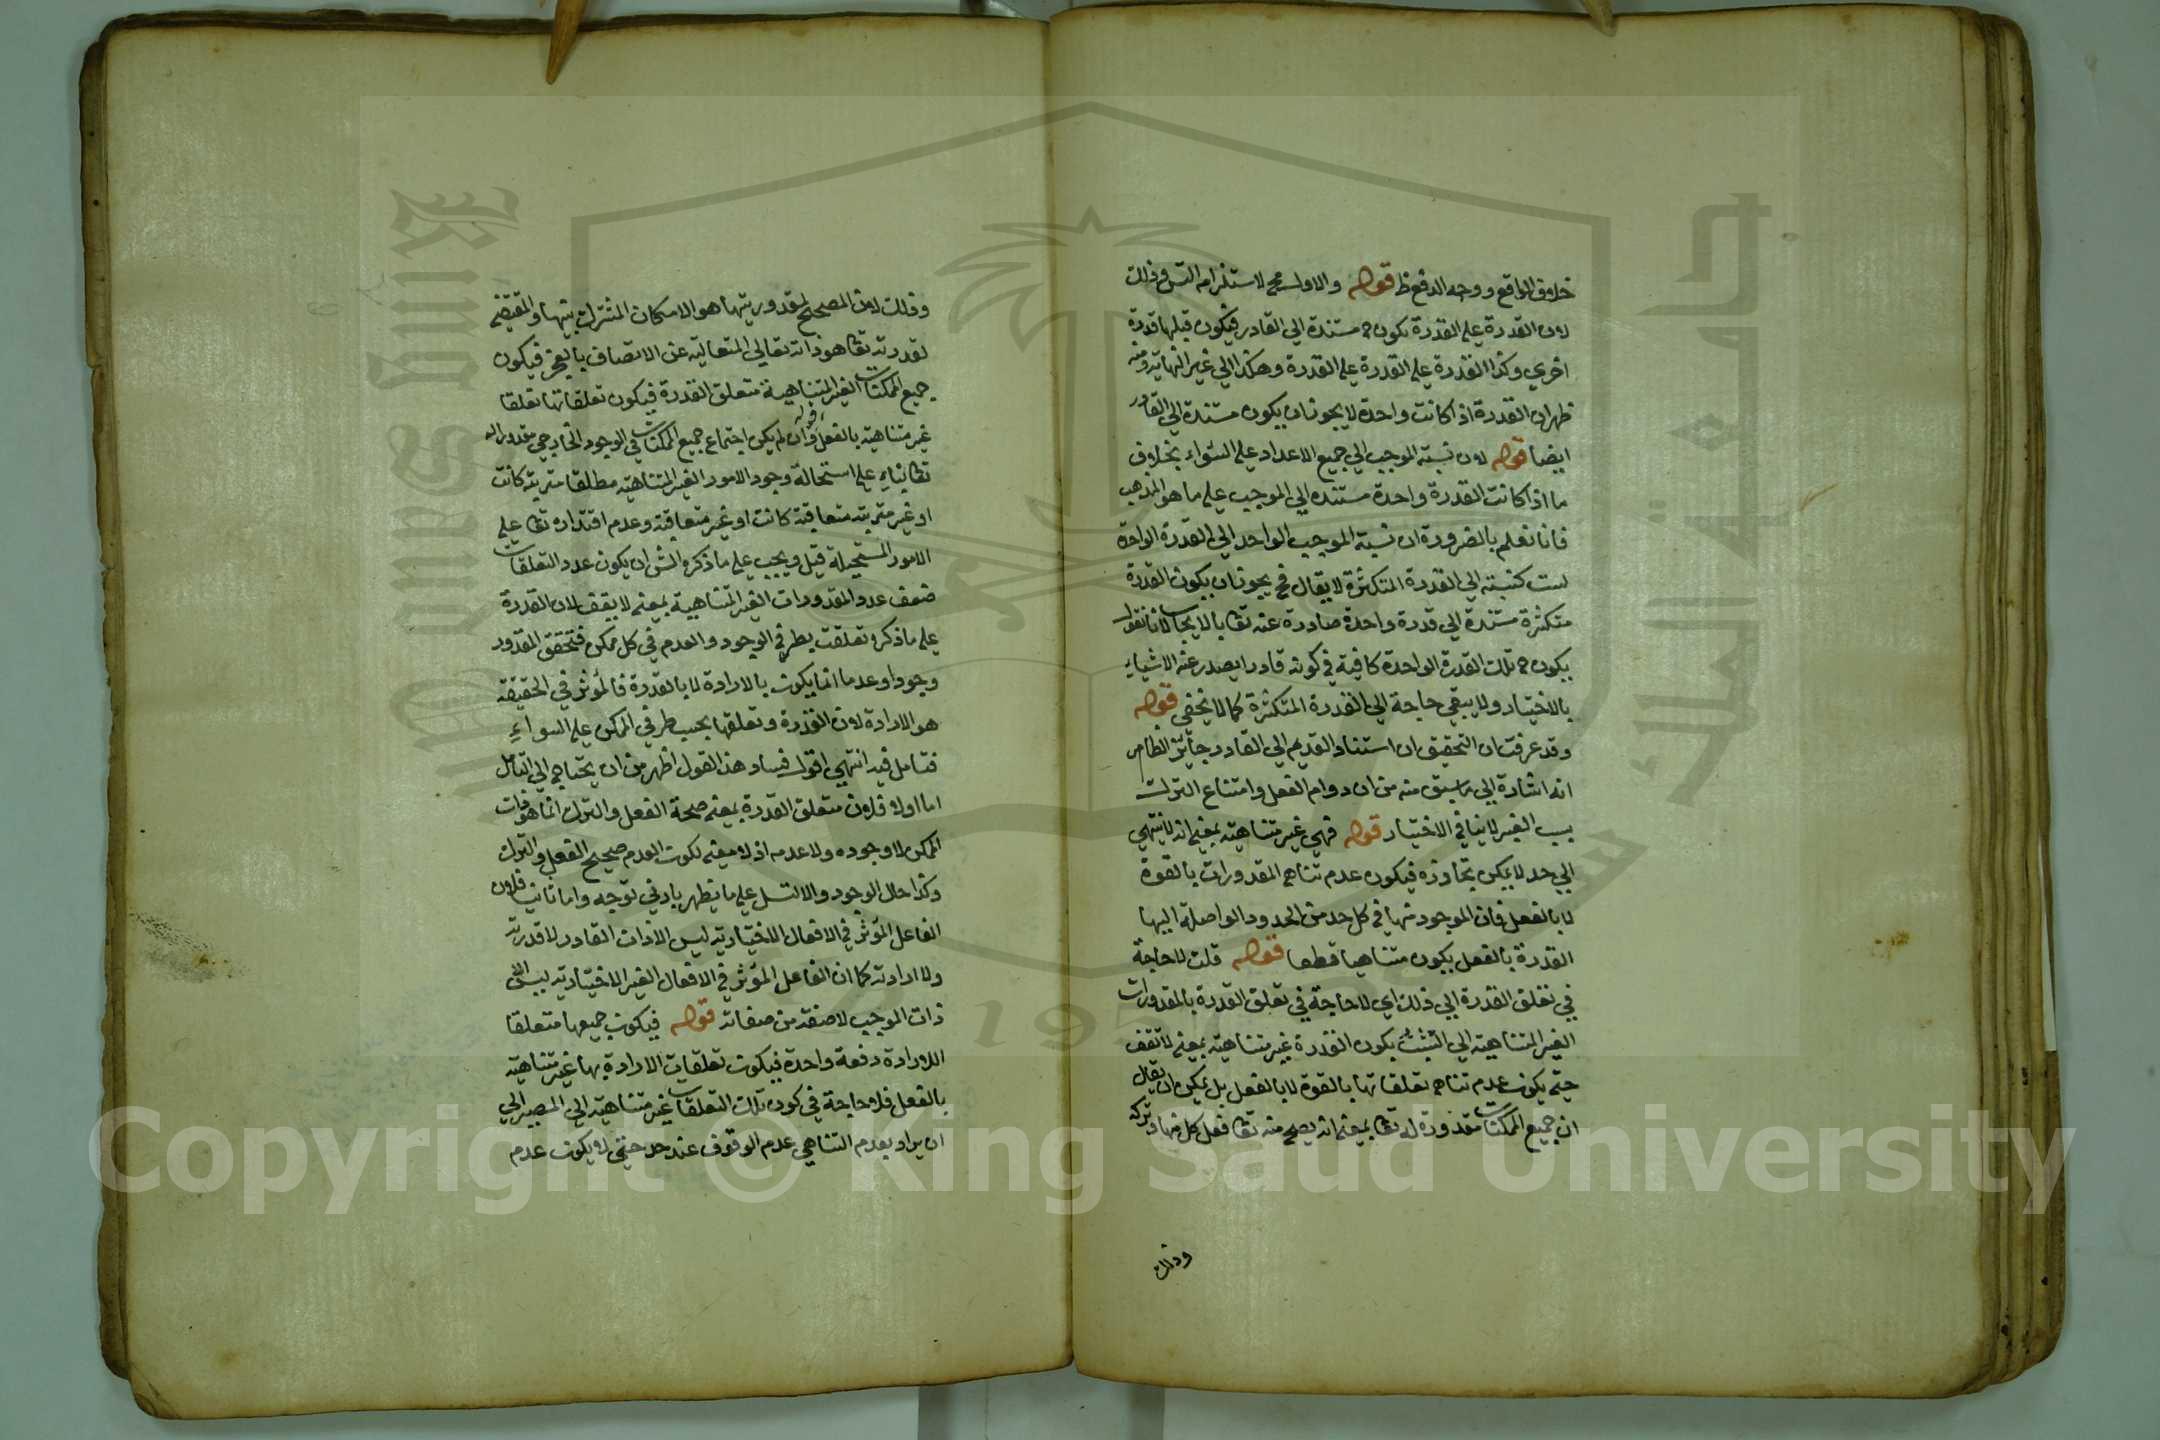 خلاف الواقع ووجه الدفع ظ قوله والاول مح لاستلزامه التس وذلك
لان القدرة على القدرة تكون ح مستندة الي القادر فيكون قبلها قدرة
اخري وكذا القدرة علي القدرة علي القدرة وهكذا الي غير النهاية ومنه
ظهر ان القدرة اذا كانت واحدة لا يجوز ان يكون مستندة الي القادر
ايضا قوله لان نسبة الموجب الي جميع الاعداد علي السواء بخلاف
ما اذا كانت القدرة واحدة مستنده الي الموجب علي ما هو المذهب
فانا نعلم بالضرورة ان نسبة الموجب الواحد الي القدرة الواحدة
ليست كنسبته الي القدرة المتكثرة لا يقال فح يجوز ان يكون القدرة
متكثرة مستندة الي قدرة واحدة صادرة عنه تعا بالايجاب لانا نقول
يكون ح تلك القدرة الواحدة كافية في كونه قادرا يصدر عنه الاشياء
بالاختيار ولا يبقي حاجة الي القدرة المتكثرة كما لا يخفي قوله
وقد عرفت ان التحقيق ان استناد القديم الي القادر جائز الظاهر
انه اشارة الي ما سبق منه من ان دوام الفعل وامتناع الترك
بسبب الغير لا ينافي الاختيار قوله فهي غير متناهية بمعني انه لا ينتهي
الي حد لا يمكن تجاوزه فيكون عدم تناهي المقدورات بالقوة
لا بالفعل فان الموجود منها في كل حد من الحدود الواصلة اليها
القدرة بالفعل يكون متناهيا قطعا قوله قلت لا حاجة
في تعلق القدرة الي ذلك اي لا حاجة في تعلق القدرة بالمقدورات
الغير المتناهية الي التشبث بكون القدرة غير متناهية بمعني لا تقف
حتي يكون عدم تناهي تعلقاتها بالقوة لا بالفعل بل يمكن ان يقال
ان جميع الممكنات مقدورة له تعا بمعني انه يصح منه تعا فعل كل منها وتركه
وذلك
وذلك لان المصحح لمقدوريتها هو الامكان المشترك بينها والمقتضي
لقدرته تعا هو ذاته تعالي المتعالية عن الاتصاف بالعجز فيكون
جميع الممكنات الغير المتناهية متعلق القدرة فيكون تعلقاتها تعلقا
غير متناهية بالفعل قوله وان لم يكن اجتماع جميع الممكنات في الوجود الخارجي مقدورا له
تعا بناء علي استحالة وجود الامور الغير المتناهية مطلقا مترتبة كانت
او غير مترتبة متعاقبة كانت او غير متعاقبة وعدم اقتداره تعا علي
الامور المستحيلة قيل ويجب علي ما ذكره الش ان يكون عدد التعلقات
ضعف عدد المقدورات الغير المتناهية بمعني لا يقف لان القدرة
علي ما ذكره تعلقت بطرفي الوجود والعدم في كل ممكن فتحقق المقدور
وجودا وعدما انما يكون بالارادة لا بالقدرة فالمؤثر في الحقيقة
هو الارادة لان القدرة وتعلقها بحسب طرفي الممكن علي السواء
فتامل فيه انتهي اقول فساد هذا القول اظهر من ان يحتاج الي التامل
اما اولا فلان متعلق القدرة بمعني صحة الفعل والترك انما هو ذات
الممكن لا وجوده ولا عدمه اذ لا معني لكون العدم صحيح الفعل والترك
وكذا حال الوجود والا لتسل علي ما يظهر بادني توجه واما ثانيا فلان
الفاعل المؤثر في الافعال الاختيارية ليس الا ذات القادر لا قدرته
ولا ارادته كما ان الفاعل المؤثر في الافعال الغير الاختيارية ليس الا
ذات الموجب لا صفة من صفاته قوله فيكون جميعها متعلقا
للارادة دفعة واحدة فيكون تعلقات الارادة بها غير متناهية
بالفعل فلا حاجة في كون تلك التعلقات غير متناهية الي المصير الي
ان يراد بعدم التناهي عدم الوقوف عند حد حتي لا يكون عدم
Copyright © King Saud University
1957